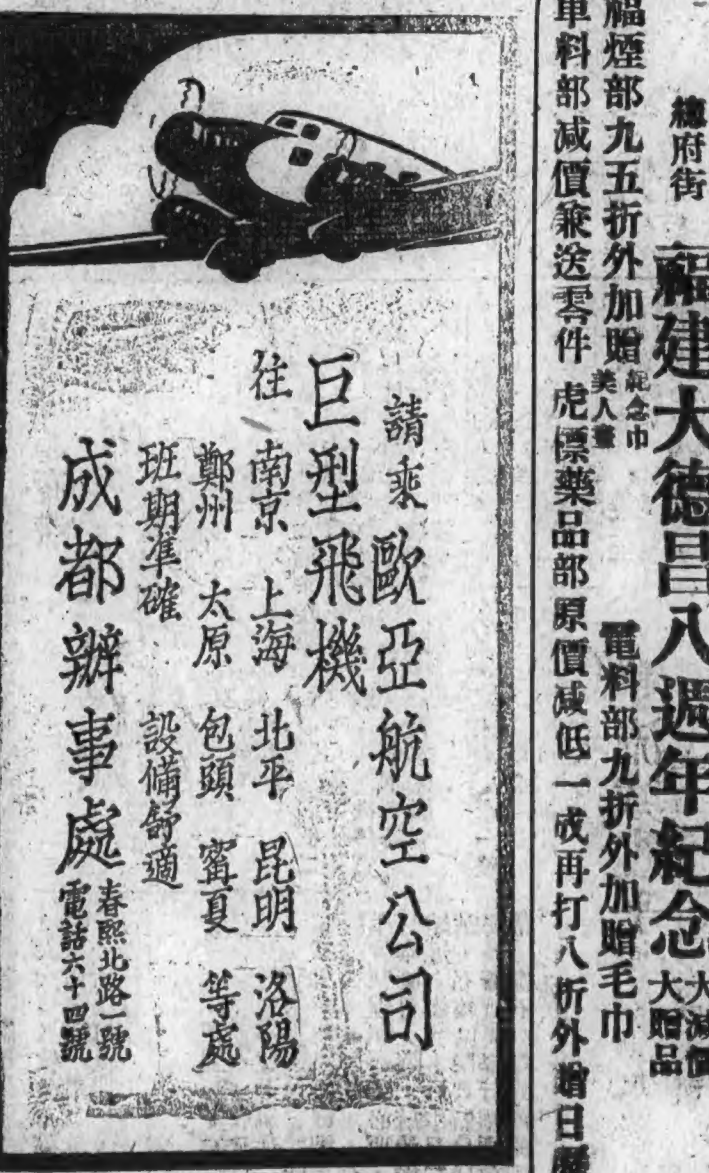 總府街
福建大德昌八週年紀念
大減價
大贈品
福煙部九五折外加贈
紀念巾
美人畫
電料部九折外加贈毛巾
車料部減價兼送零件
虎標藥品部原價減低一成再打八折外贈日
請乘歐亞航空公司
巨型飛機
往 南京 上海 北平 昆明 洛陽
鄭州 太原 包頭 寗夏 等處
班期準確 設備舒適
成都辦事處
春熙北路一號
電話六十四號